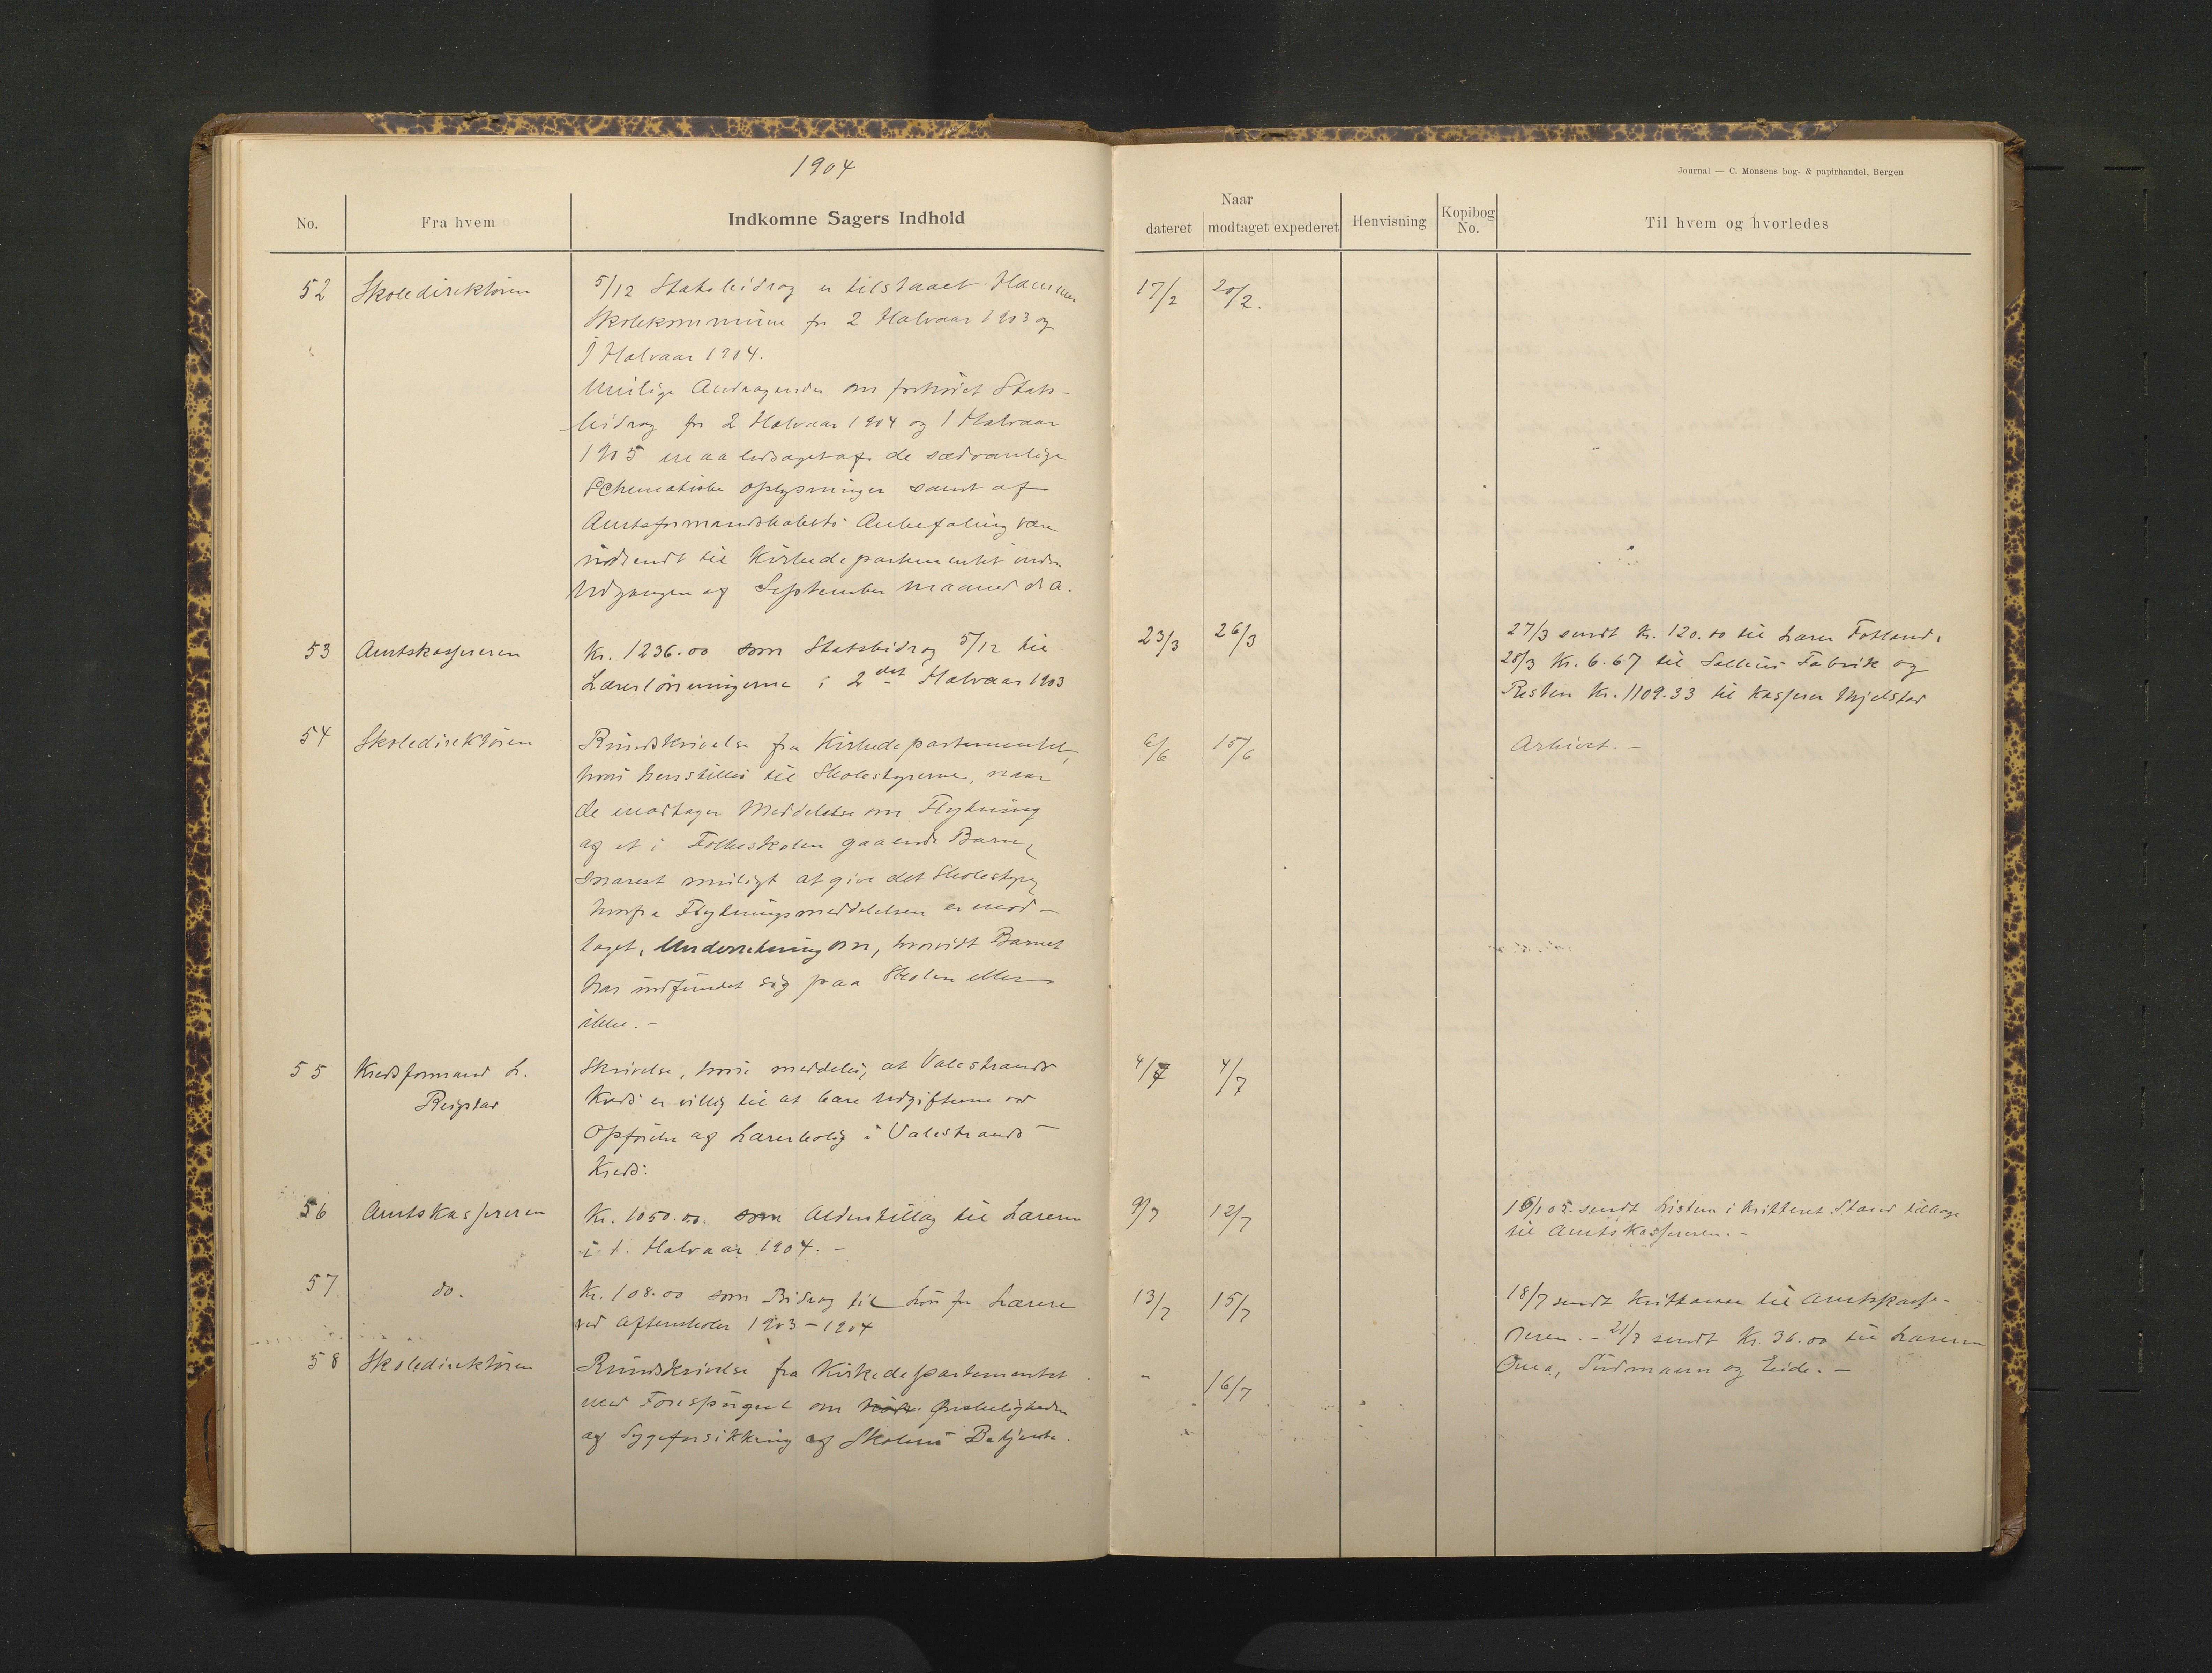 1904
Journal — C. Monsens bog- & papirhandel, Bergen
No.
Fra hvem
Indkomne Sagers Indhold
Naar
dateret
modtaget
expederet
Henvisning
Kopibog No.
Til hvem og hvorledes
52 Skoledirektøren 5/12 Statsbidrag er tilstaaet Hammer 17/2 20/2.
Skolekommune for 2 Halvaar 1903 og
1 Halvaar 1904.
Mulige Andragender om forhøiet Stats-
bidrag for 2 Halvaar 1904 og 1 Halvaar
1905 maa ledsaget af de sædvanlige
Schematiske Oplysninger samt af
Amtsformandskabets Anbefaling være
indsendt til Kirkedepartementet inden
Udgangen af September Maaned d. A.
53 Amtskassereren Kr. 1236.00 som Statsbidrag 5/12 til 23/3 26/3 27/3 sendt Kr. 120.00 til Lærer Fotland,
Lærerlønningerne i 2det Halvaar 1903 28/3 Kr. 6.67 til Fabrik og
Resten Kr. 1109.33 til Kasserer Mjelstad
54 Skoledirektøren Rundskrivelse fra Kirkedepartementet, 6/6 15/6 Arkivet. –
hvori henstilles til Skolestyrerne, naar
de modtager Meddelelse om Flytning
af et i Folkeskolen gaaende Barn,
snarest muligt at give det Skolestyre,
hvorfra Flytningsmeddelelsen er mod-
taget, Underretning om, hvorvidt Barnet
har indfundet sig paa Skolen eller
ikke. –
55 Kredsformand L. Skrivelse, hvori meddeles, at Valestrands 4/7 4/7
Reigstad Kreds er villig til at bære Udgifterne ved
Opførelse af Lærerbolig i Valestrands
Kreds.
56 Amtskassereren Kr. 1050.00. som Alderstillæg til Lærerne 9/7 12/7 16/1 05. sendt Listen i kvitteret Stand tilbage
i 1. Halvaar 1904. – til Amtskassereren. –
57 do. Kr. 108.00 som Bidrag til Løn for Lærere 13/7 15/7 18/7 sendt Kvittering til Amtskasse-
ved Aftenskoler 1903–1904 reren. – 21/7 sendt Kr. 36.00 til Lærerne
58 Skoledirektøren Rundskrivelse fra Kirkedepartementet " 16/7 Sudmann og Eide. –
med Forespørgsel om Ønskeligheden
af Sygeforsikring af Skolens Betjente.